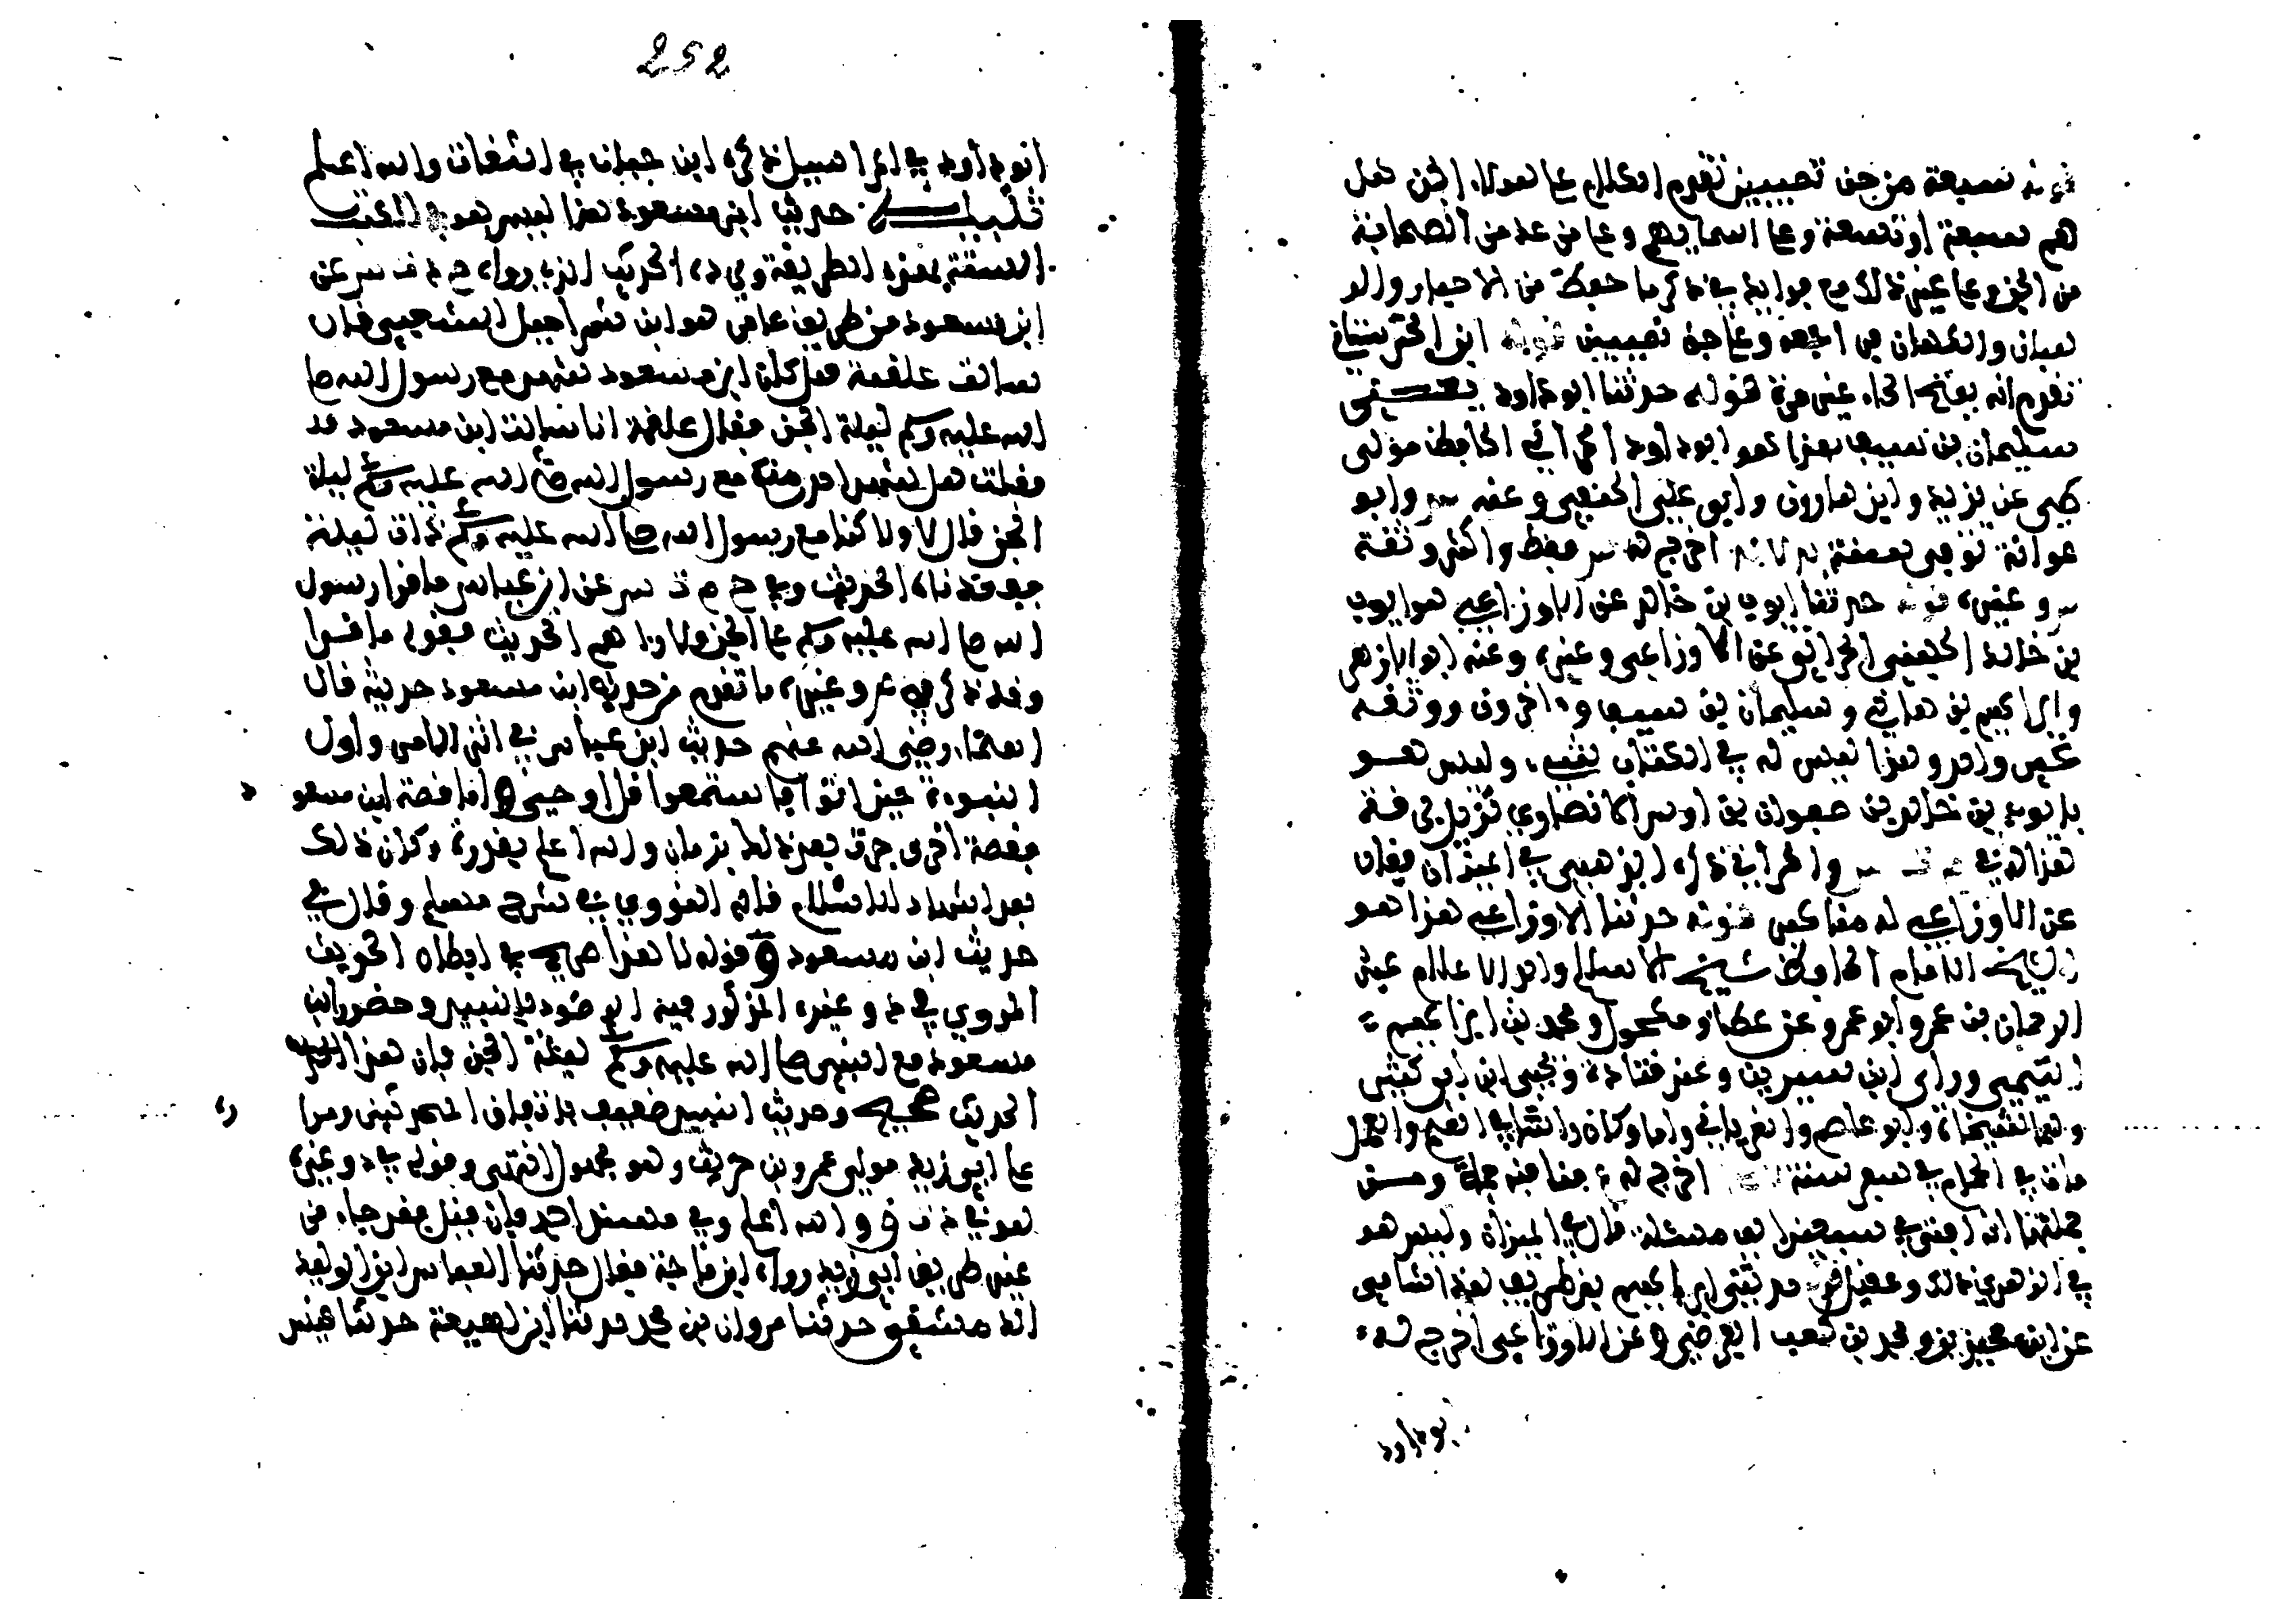 قوله سبعة من جن نصيبين تقدم الكلام على هولاء الجن هل
هم سبعة او تسعة وعلى اسمايهم وعلى من عد من الصحابة
من الجن وعلى غير ذلك مع فوايد في ذكر ما حفظ من الاحبار والر
هبان والكهان في امره وعلى جن نصيبين قوله ابن الحرستاني
تقدم انه بفتح الحاء غير مرة قوله حدثنا ابو داود يعني
سليمان بن سيف هذا هو ابو داود الحراني الحافظ مولى
طيي عن يزيد وابن هارون وابي علي الحنفي وعنه س وابو
عوانة توفي سنة اخرج له س فقط واكثر وثقه
س وغيره قوله حدثنا ايوب بن خالد عن الاوزاعي هو ايوب
بن خالد الجهني الحراني عن الاوزاعي وغيره وعنه ابو الازهر
وابراهيم بن هاني وسليمان بن سيف وءاخرون ووثقه
غير واحد وهذا ليس له في الكتب شيء وليس هو
بايوب بن خالد بن صفوان بن اوس الانصاري نزيل برقة
هذا له في م ت س والحراني ذكره الذهبي في الميزان فقال
عن الاوزاعي له مناكير قوله حدثنا الاوزاعي هذا هو
الشيخ الامام الحافظ شيخ الاسلام واحد الاعلام عبد
الرحمان بن عمرو ابو عمرو عن عطاء ومكحول ومحمد بن ابراهيم
التيمي وراى ابن سيرين وعنه قتادة ويحيى ابن ابي كثير
وهما شيخاه وابو عاصم والفريابي واما وكان راسا في العلم والعمل
مات في الحمام في سفر سنة اخرج له ع مناقبه جمة ومن
جملتها انه افتى في سبعين الف مسئلة قال في الميزان وليس هو
في الزهري كمالك وعقيل قوله حدثني ابراهيم بن طريف هذا شامي
عن ابن محيريز ومحمد بن كعب القرظي وعن الاوزاعي اخرج له
ابو داود
252
ابو داود في المراسيل ذكره ابن حبان في الثقات والله اعلم
تنبيه حديث ابن مسعود هذا ليس هو في الكتب
الستة بهذه الطريقة وفي د الحديث الذي رواه م د ت س عن
ابن مسعود من طريق عامر هو ابن شراحيل الشعبي قال
سالت علقمة هل كان ابن مسعود شهد مع رسول الله صلى
الله عليه وسلم ليلة الجن فقال علقمة انا سالت ابن مسعود قد
فقلت هل شهد احد منكم مع رسول الله صلى الله عليه وسلم ليلة
الجن قال لا ولاكنا مع رسول الله صلى الله عليه وسلم ذات ليلة
ففقدناه الحديث وفي خ م ت س عن ابن عباس ما قرا رسول
الله صلى الله عليه وسلم على الجن ولا راهم الحديث فيقول ما قرا
وقد ذكر في عر وغيره ما تقدم من حديث ابن مسعود حديثه قال
العلماء رضي الله عنهم حديث ابن عباس في اثني الامر واول
النبوءة حين اتوا فاستمعوا قل اوحي واما قصة ابن مسعود
فقصة اخرى جرت بعد ذلك بزمان والله اعلم بقدره وكان ذلك
بعد اشتهار الاسلام قاله النووي في شرح مسلم وقال في
حديث ابن مسعود وقوله لا هذا صريح في ابطال الحديث
المروي في د وغيره المذكور فيه الوضوء بالنبيذ وحضور ابن
مسعود مع النبي صلى الله عليه وسلم ليلة الجن فان هذا
الحديث صحيح وحديث النبيذ ضعيف باتفاق المحدثين ومداره
على ابي زيد مولى عمرو بن حريث وهو مجهول انتهى وقوله في د وغيره
هو في د ت ق والله اعلم وفي مسند احمد فان قيل فقد جاء من
غير طريق ابي زيد رواه ابن ماجة فقال حدثنا العباس ابن الوليد
الدمشقي حدثنا مروان بن محمد حدثنا ابن لهيعة حدثنا قيس